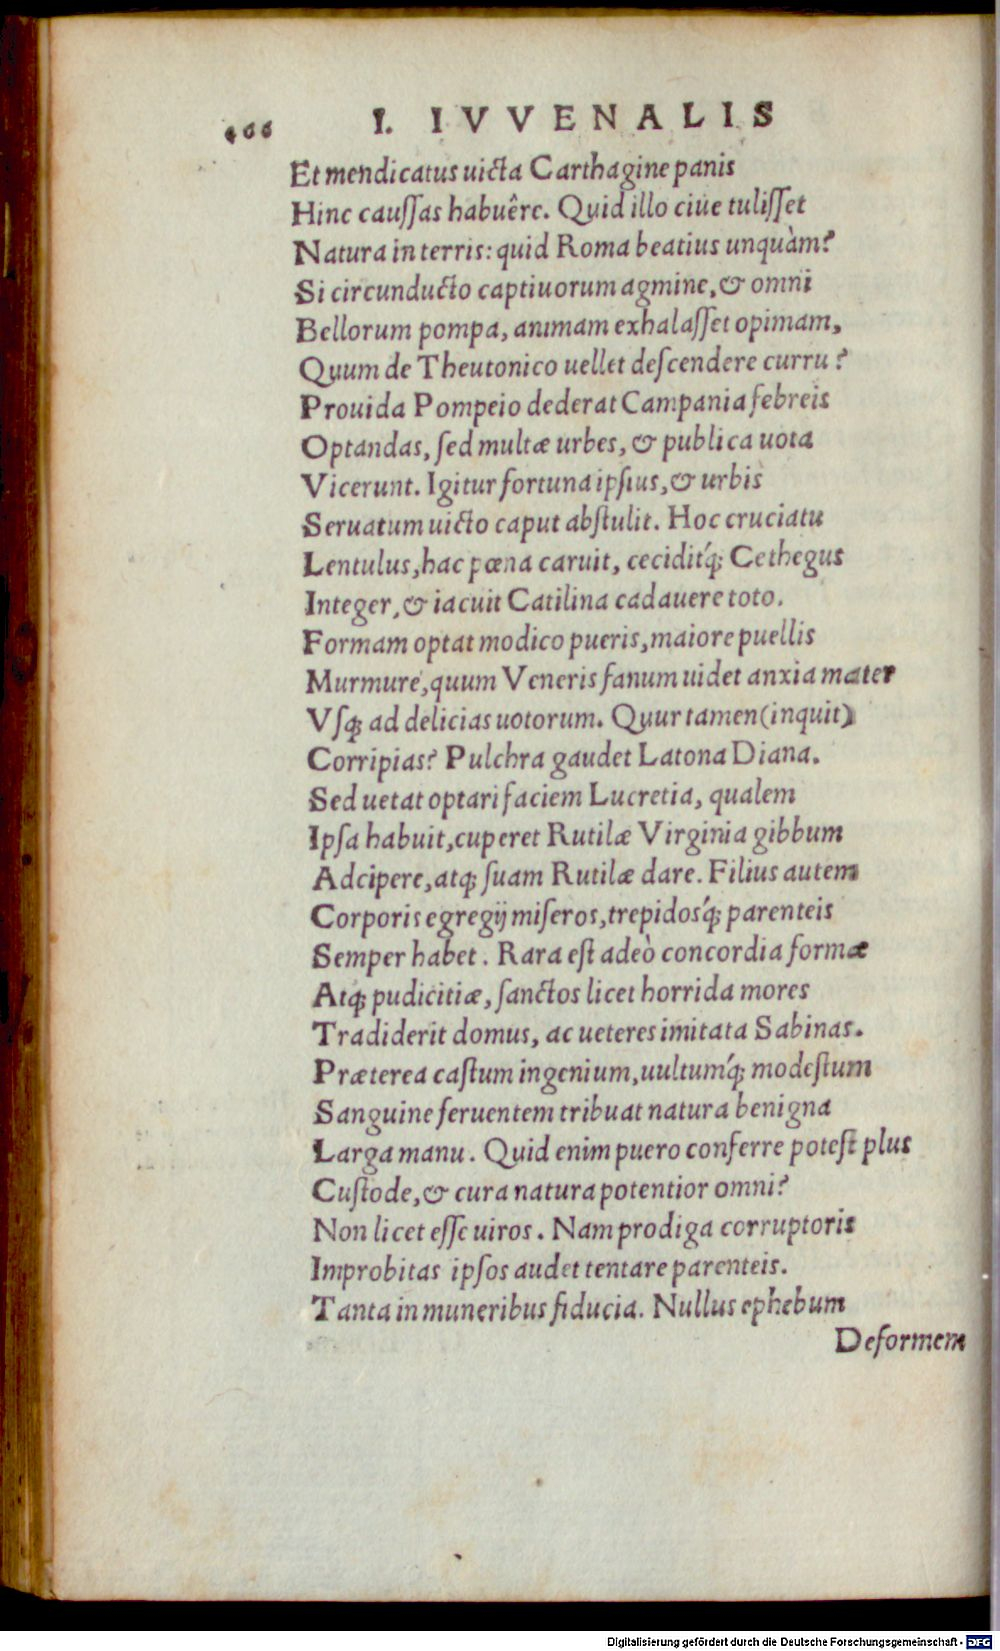 466 I. IVVENALIS
Et mendicatus uicta Carthagine panis
Hinc cauſſas habuêre. Quid illo ciue tuliſſet
Natura in terris: quid Roma beatius unquàm?
Si circunducto captiuorum agmine, & omni
Bellorum pompa, animam exhalaſſet opimam,
Quum de Theutonico uellet deſcendere curru?
Prouida Pompeio dederat Campania febreis
Optandas, ſed multæ urbes, & publica uota
Vicerunt. Igitur fortuna ipſius, & urbis
Seruatum uicto caput abſtulit. Hoc cruciatu
Lentulus, hac pœna caruit, cecidit́q; Cethegus
Integer, & iacuit Catilina cadauere toto.
Formam optat modico pueris, maiore puellis
Murmure, quum Veneris fanum uidet anxia mater
Vſq; ad delicias uotorum. Quur tamen (inquit)
Corripias? Pulchra gaudet Latona Diana.
Sed uetat optari faciem Lucretia, qualem
Ipſa habuit, cuperet Rutilæ Virginia gibbum
Adcipere, atq; ſuam Rutilæ dare. Filius autem
Corporis egregij miſeros, trepidoś q; parenteis
Semper habet. Rara eſt adeò concordia formæ
Atq; pudicitiæ, ſanctos licet horrida mores
Tradiderit domus, ac ueteres imitata Sabinas.
Præterea caſtum ingenium, uultuḿq; modeſtum
Sanguine feruentem tribuat natura benigna
Larga manu. Quid enim puero conferre poteſt plus
Cuſtode, & cura natura potentior omni?
Non licet eſſe uiros. Nam prodiga corruptoris
Improbitas ipſos audet tentare parenteis.
Tanta in muneribus fiducia. Nullus ephebum
Deformem
Digitalisierung gefördert durch die Deutsche Forschungsgemeinschaft - DFG